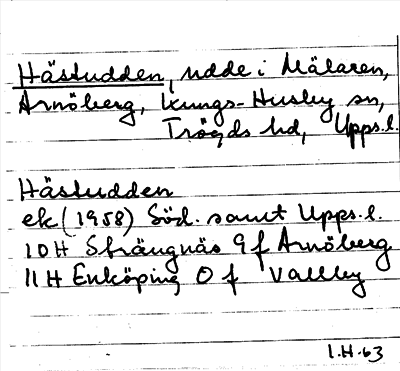 Hästudden, udde i Mälaren,
Arnöberg, Kungs-Husby sn,
Trögds hd, Upps.l.
Hästudden
ek (1958) Söd. samt Upps.l.
10H Strängnäs 9 f Arnöberg
11H Enköping 0 f Vallby
I.H-63